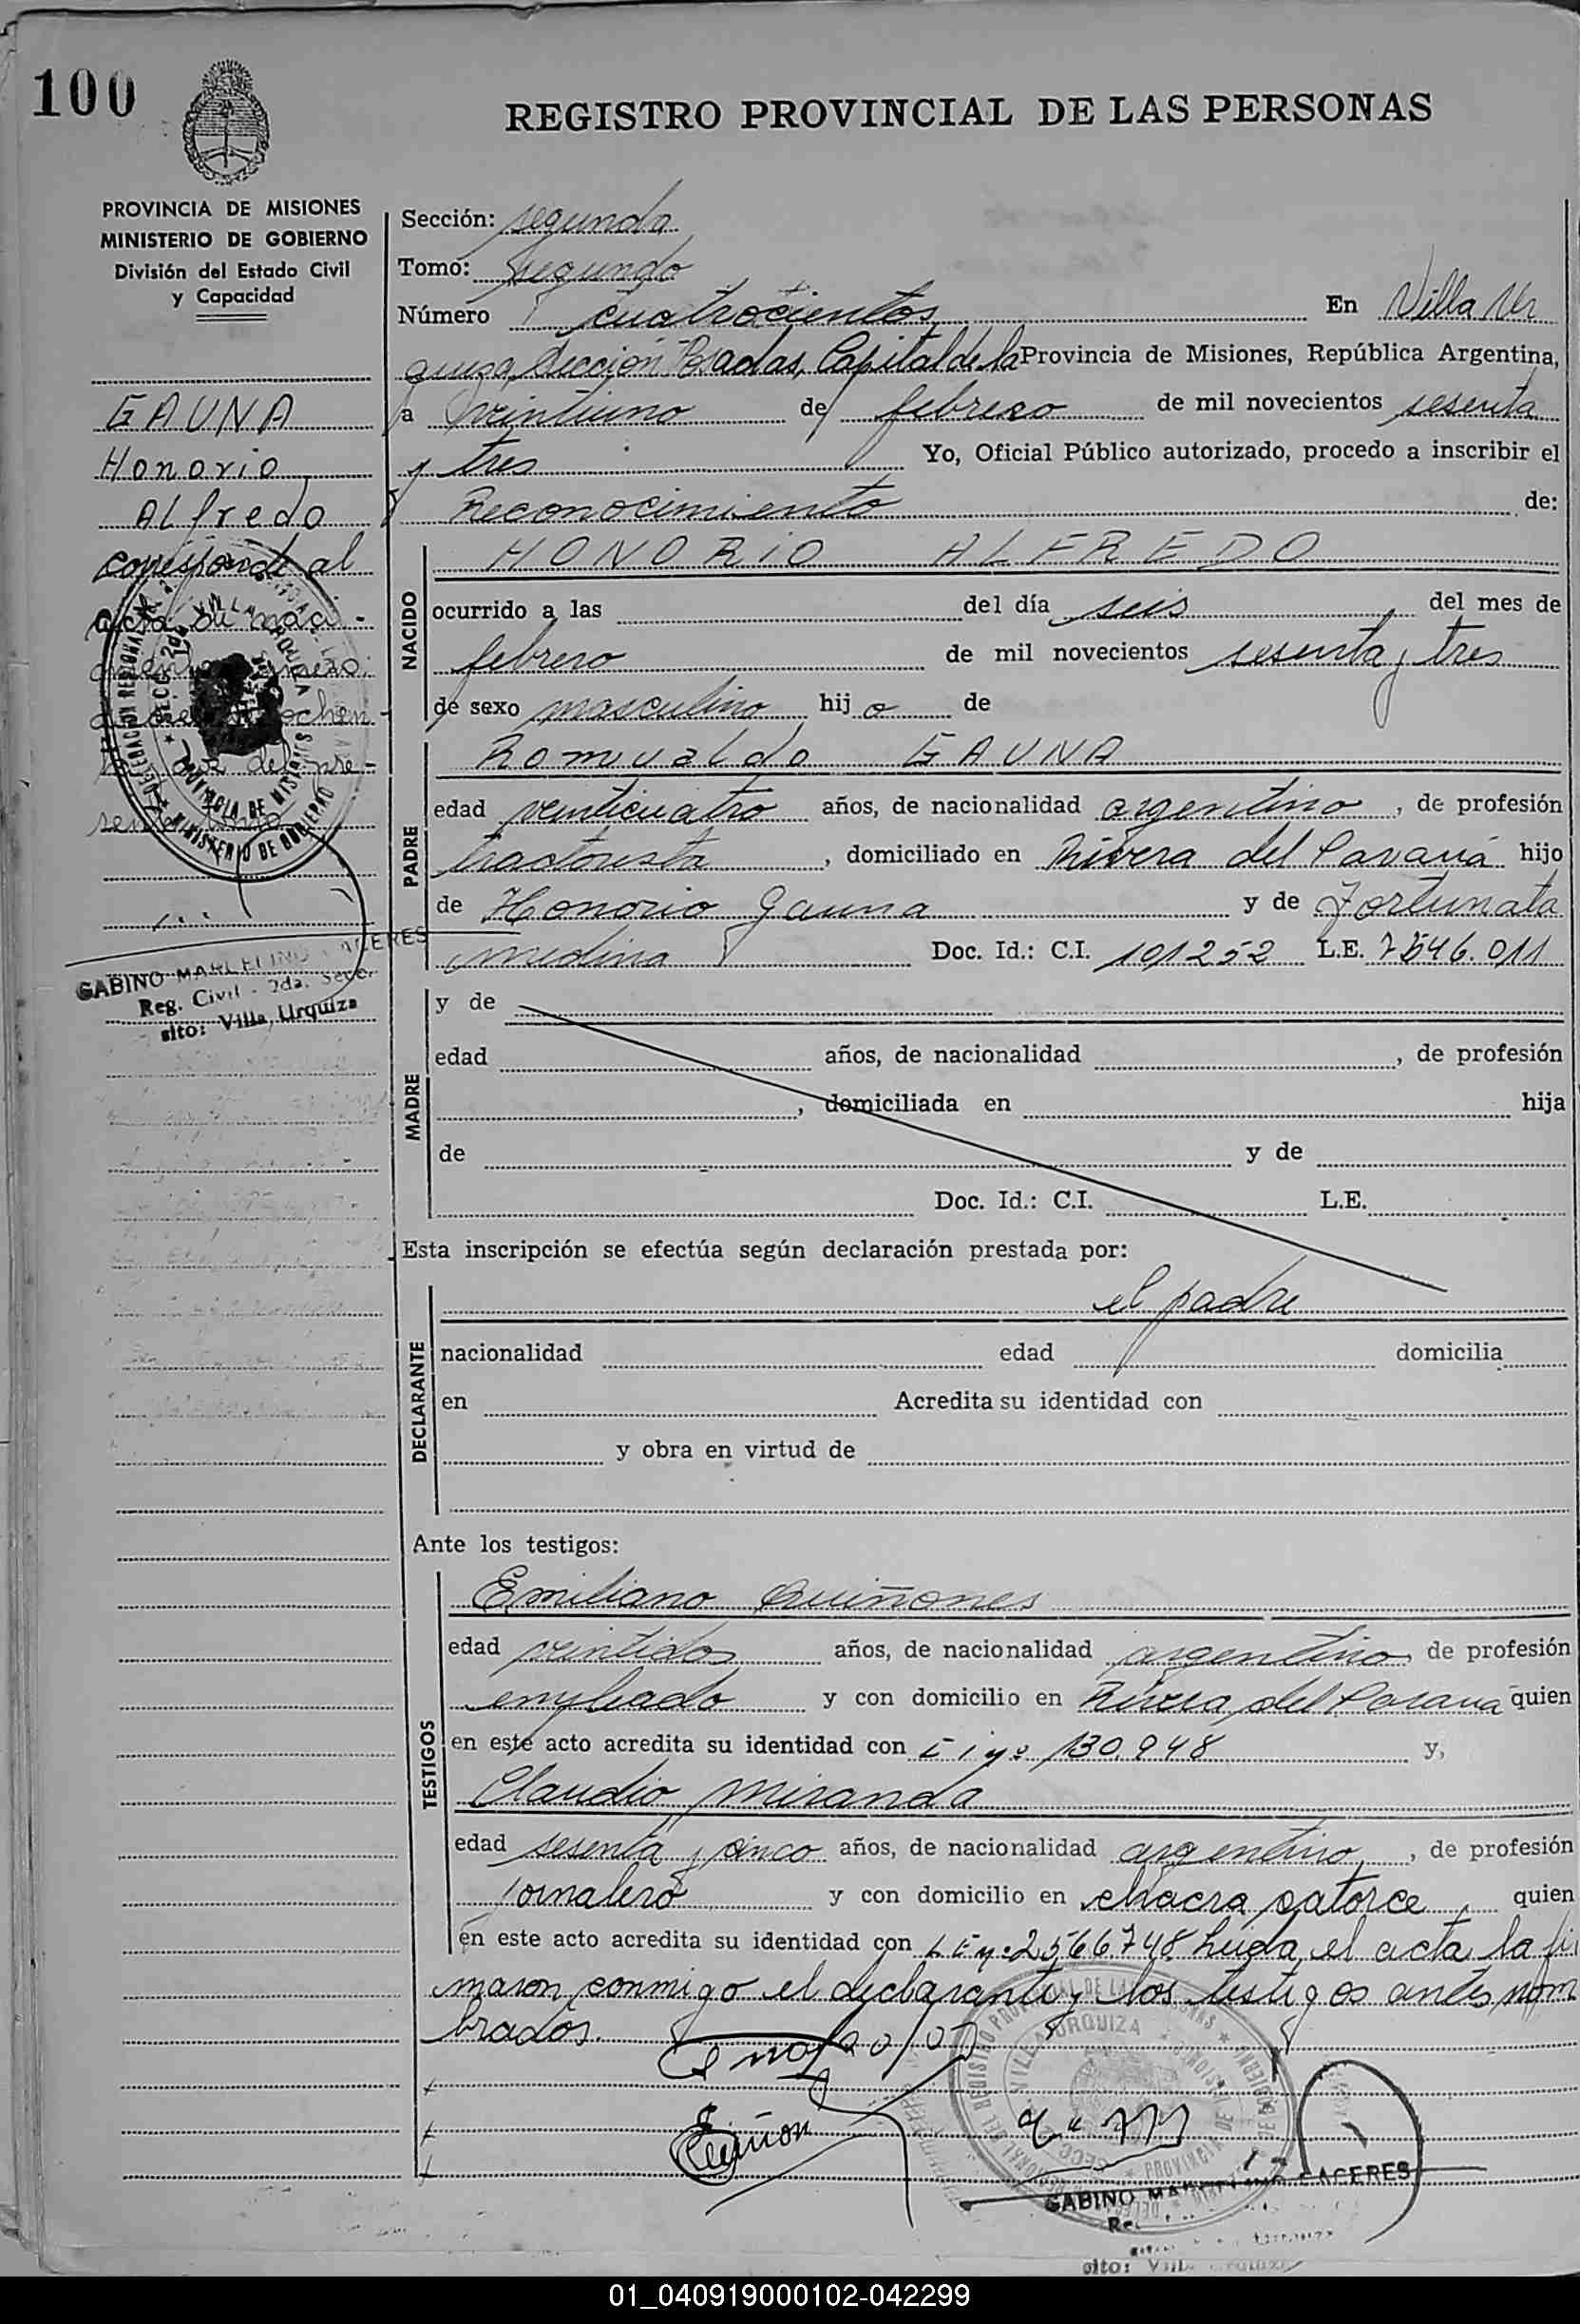 100
REGISTRO PROVINCIAL DE LAS PERSONAS
PROVINCIA DE MISIONES
MINISTERIO DE GOBIERNO
División del Estado Civil
y Capacidad
GAUNA
Honorio
Alfredo
corresponde al
acta su naci-
del pre-
sente tomo
GABINO MARCELINO CACERES
Reg. Civil - 2da. Secc.
sito: Villa Urquiza
Sección: segunda
Tomo: segundo
Número cuatrocientos En Villa Ur
quiza, Sección Posadas, Capital de la Provincia de Misiones, República Argentina,
a veintiuno de febrero de mil novecientos sesenta
y tres Yo, Oficial Público autorizado, procedo a inscribir el
Reconocimiento de:
NACIDO
HONORIO ALFREDO
ocurrido a las del día seis del mes de
febrero de mil novecientos sesenta y tres
de sexo masculino hijo de
PADRE
Romualdo GAUNA
edad veinticuatro años, de nacionalidad argentino, de profesión
tractorista, domiciliado en Rivera del Paraná hijo
de Honorio Gauna y de Fortunata
medina Doc. Id.: C.I. 101252 L.E. 7546.011
MADRE
y de
edad años, de nacionalidad , de profesión
, domiciliada en hija
de y de
Doc. Id.: C.I. L.E.
Esta inscripción se efectúa según declaración prestada por:
DECLARANTE
el padre
nacionalidad edad domicilia
en Acredita su identidad con
y obra en virtud de
Ante los testigos:
TESTIGOS
Emiliano Quiñones
edad veintidos años, de nacionalidad argentino de profesión
empleado y con domicilio en Rivera del Parana quien
en este acto acredita su identidad con 130.948 y,
Claudio Miranda
edad sesenta y cinco años, de nacionalidad argentino, de profesión
jornalero y con domicilio en chacra catorce quien
en este acto acredita su identidad con 2566748 leida el acta la fir
maron conmigo el declarante y los testigos antes nom
brados.
GABINO MARCELINO CACERES
sito: Villa Urquiza
01_040919000102-042299